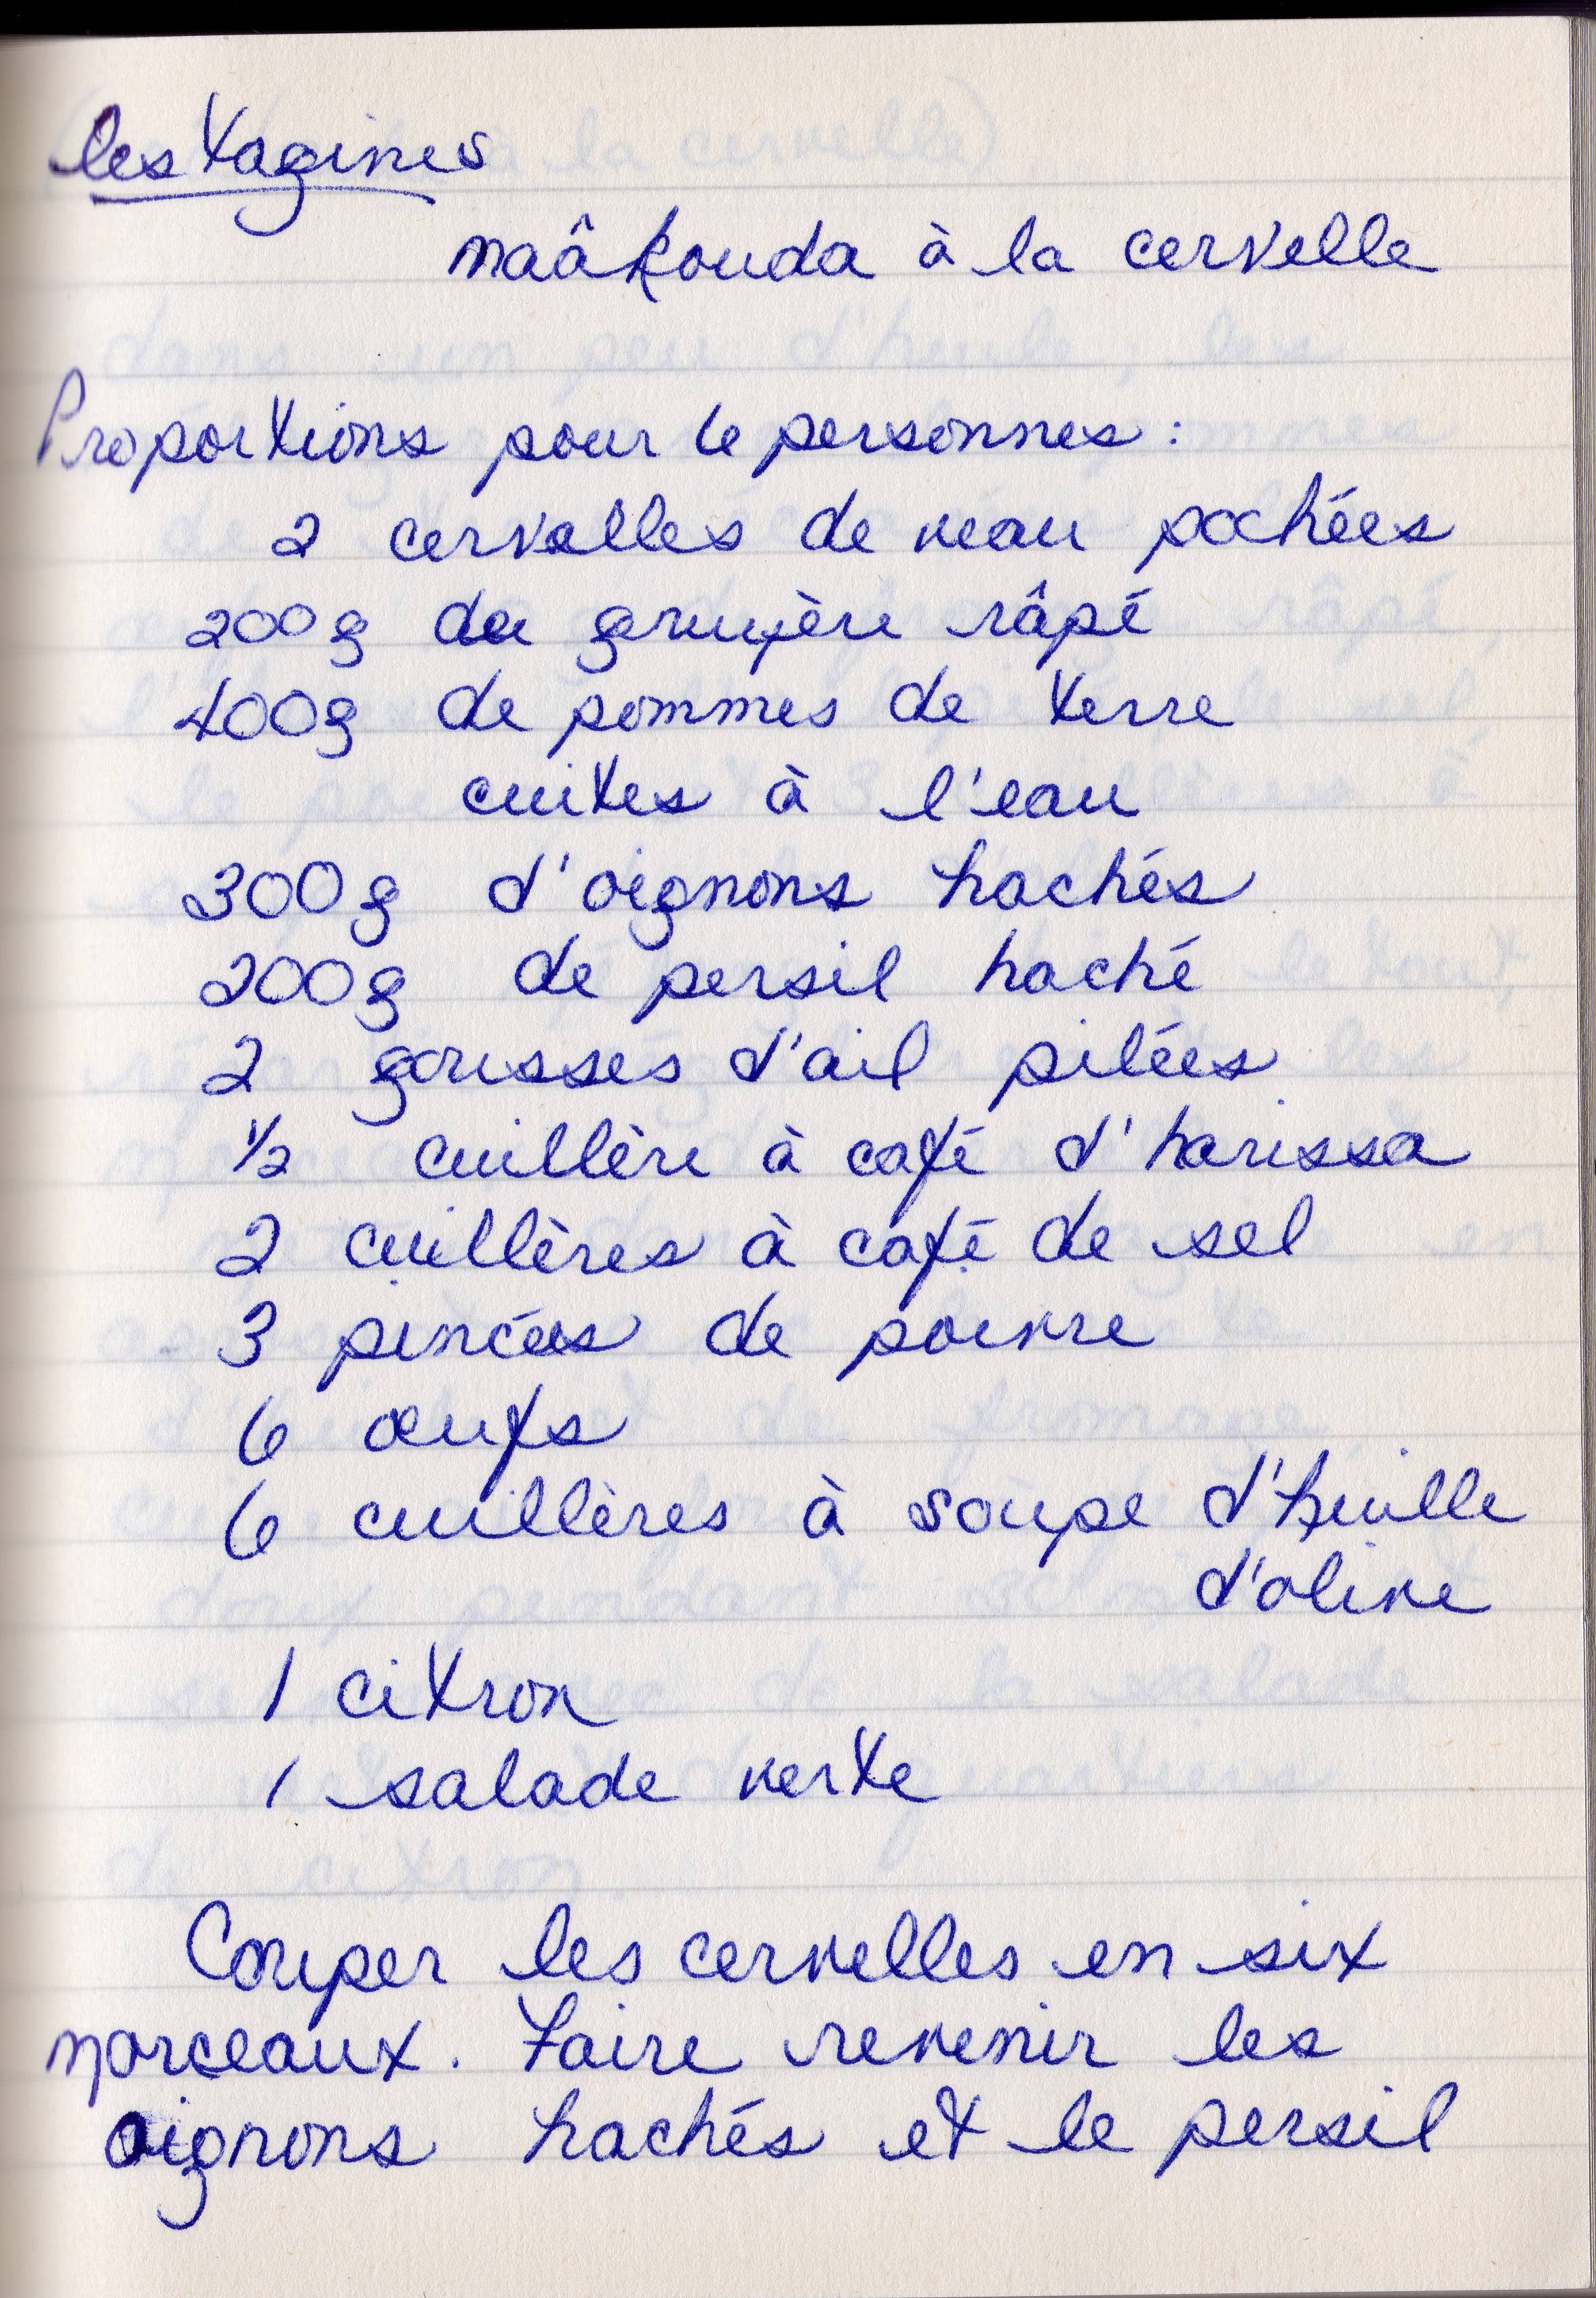 les tagines
maâkouda à la cervelle
Proportions pour 6 personnes :
2 cervelles de veau pochées
200g de gruyère râpé
400g de pommes de terre
cuites à l'eau
300g d'oignons hachés
200g de persil haché
2 gousses d'ail pilées
1/2 cuillère à café d'harissa
2 cuillères à café de sel
3 pincées de poivre
6 œufs
6 cuillères à soupe d'huille
d'olive
1 citron
1 salade verte
Couper les cervelles en six
morceaux. Faire revenir les
oignons hachés et le persil